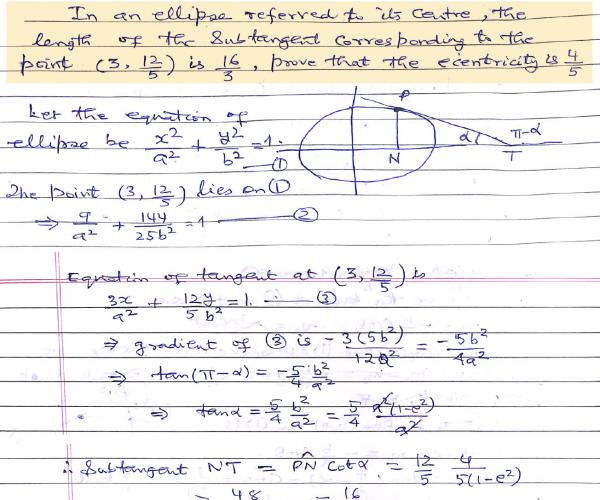 In an ellipse referred to its centre, the
length of the Subtangent Corresponding to the
point (3, 12/5) is 16/3, prove that the eccentricity is 4/5
Let the equation of
ellipse be x²/a² + y²/b² = 1. ①
P
α
π-α
N
T
The point (3, 12/5) lies on ①
⇒ 9/a² + 144/25b² = 1 ②
Equation of tangent at (3, 12/5) is
3x/a² + 12y/5b² = 1. ③
⇒ gradient of ③ is -3(5b²)/12a² = -5b²/4a²
⇒ tan(π-α) = -5/4 b²/a²
⇒ tanα = 5/4 b²/a² = 5/4 a²(1-e²)/a²
∴ Subtangent NT = PN Cotα = 12/5 4/5(1-e²)
= 48 = 16